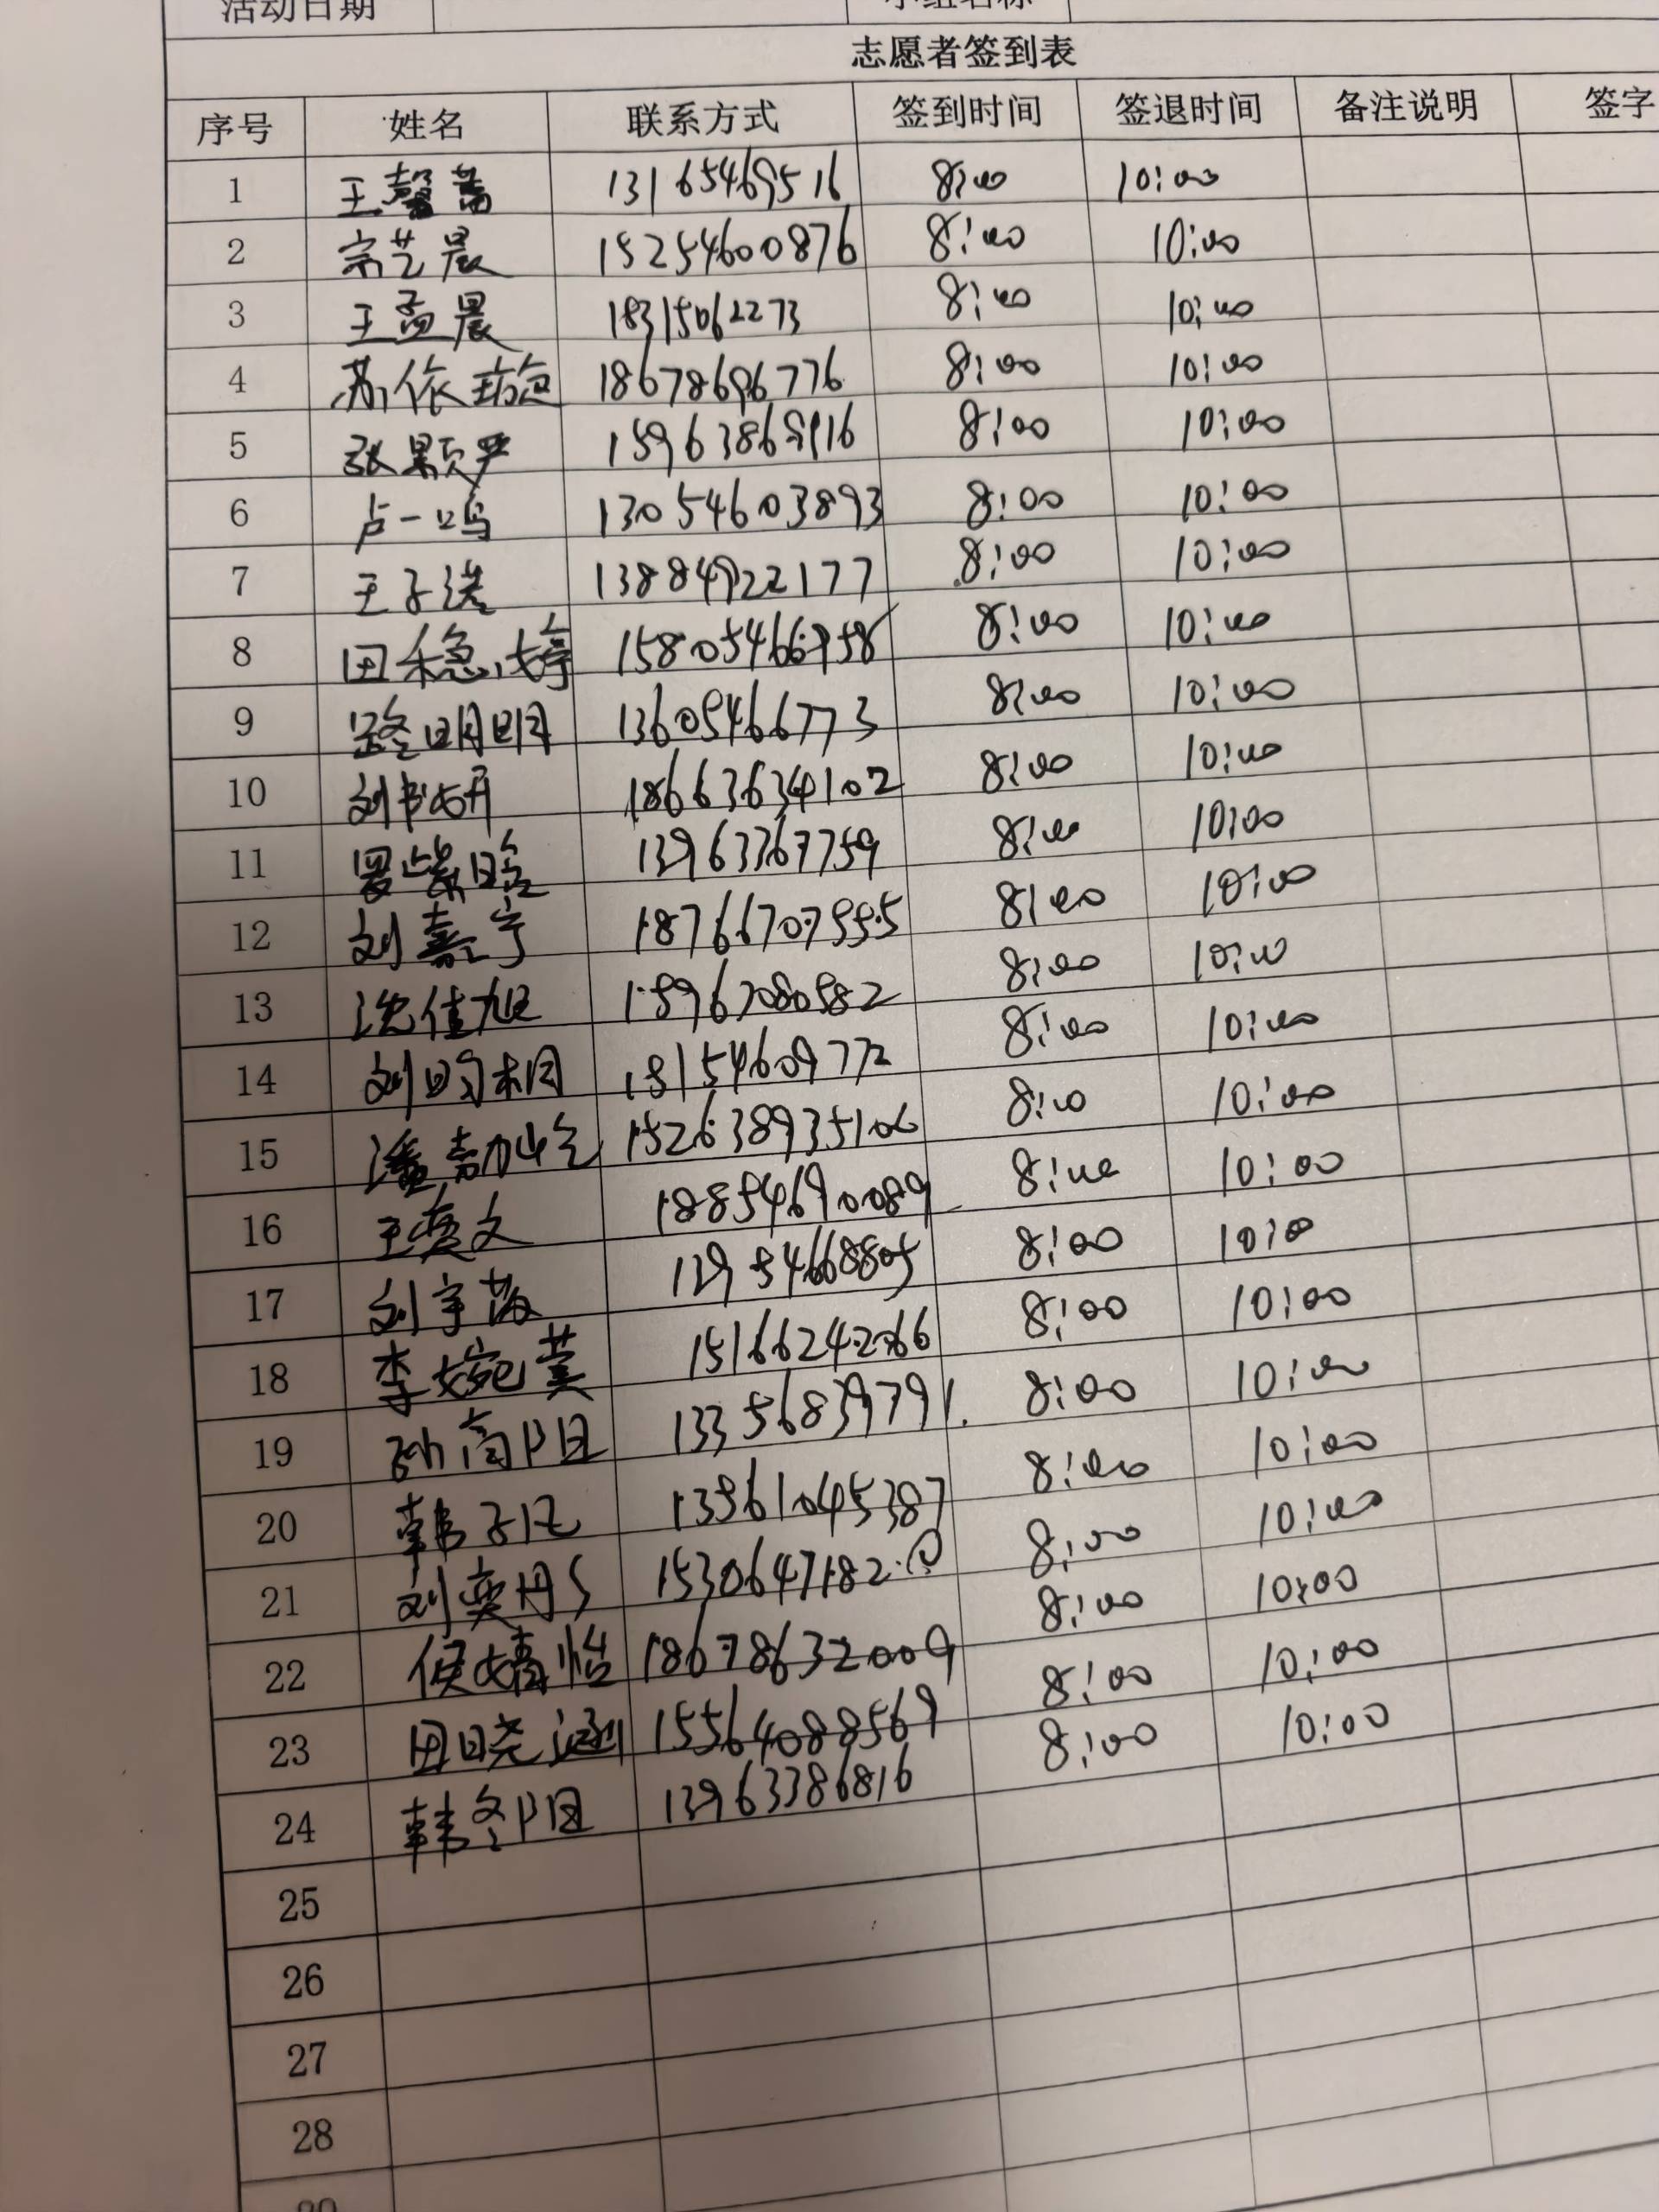 活动日期 小组名称
志愿者签到表
序号 姓名 联系方式 签到时间 签退时间 备注说明 签字
1 王馨 13165469516 8:00 10:00
2 宗艺晨 15254600876 8:00 10:00
3 王孟晨 18315062273 8:00 10:00
4 苏依 18678696776 8:00 10:00
5 张颢严 8:00 10:00
6 卢一鸣 13054603893 8:00 10:00
7 王子洪 13884922177 8:00 10:00
8 田稳婷 8:00 10:00
9 路明明 13605466773 8:00 10:00
10 刘书妍 18663634102 8:00 10:00
11 罗紫晗 13963367759 8:00 10:00
12 刘嘉宁 8:00 10:00
13 沈佳旭 8:00 10:00
14 刘昀桐 8:00 10:00
15 潘 8:00 10:00
16 王奕文 18854690089 8:00 10:00
17 刘宇 13954668805 8:00 10:00
18 李婉萁 8:00 10:00
19 孙高阳 13356839791. 8:00 10:00
20 韩子凡 13561045387 8:00 10:00
21 刘奕彤 8:00 10:00
22 侯婧怡 18678632009 8:00 10:00
23 田晓涵 15564088569 8:00 10:00
24 韩冬阳 13963386816
25
26
27
28